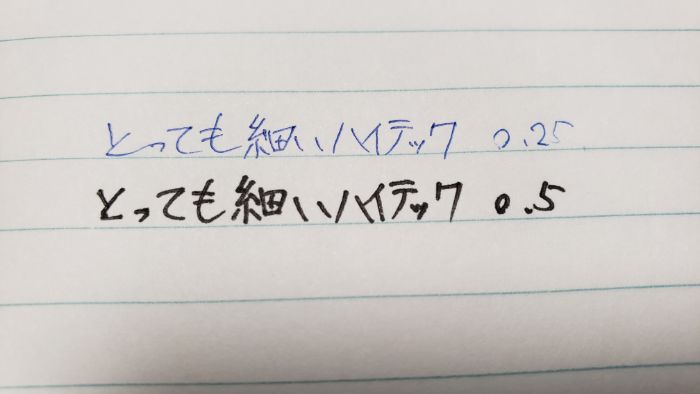 とっても細いハイテック 0.25
とっても細いハイテック 0.5